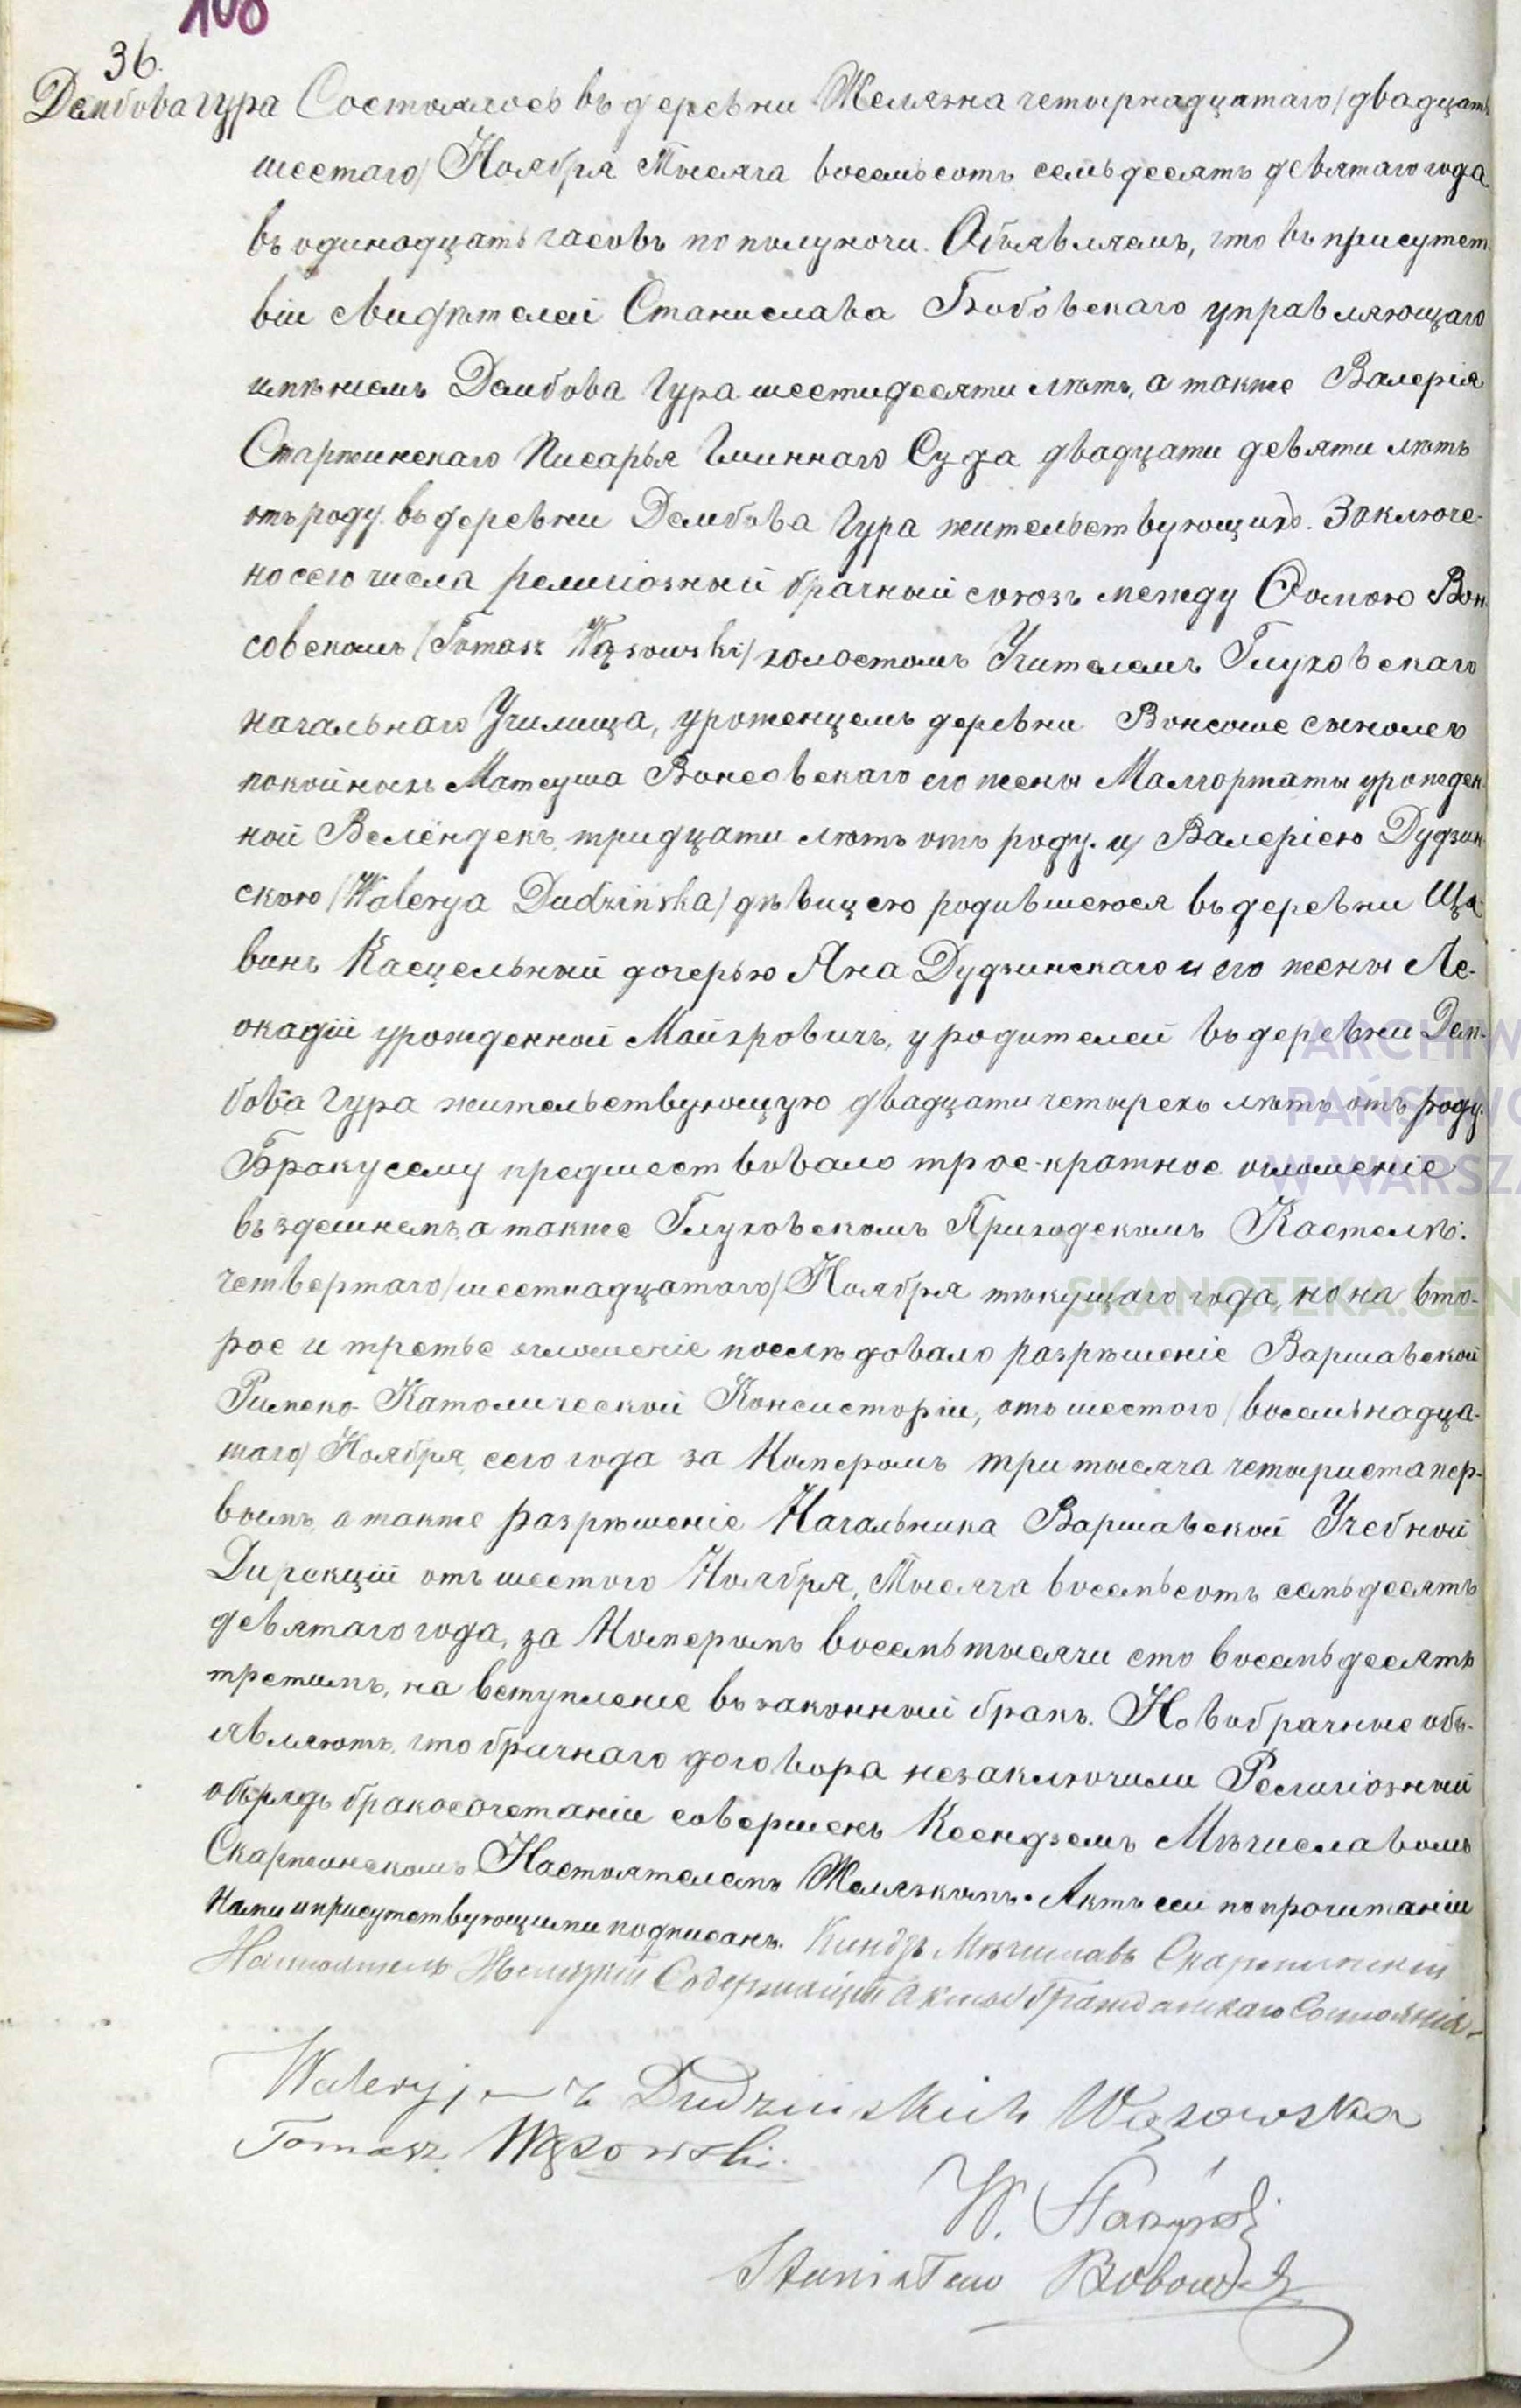 108
36.
Дембова гура Состоялось въ деревни Желязна четырнадцатаго /двадцать
шестаго/ Ноября Тысяча восемьсотъ семьдесятъ девятаго года
въ одинадцать часовъ по полуночи. Объявляемъ, что въ присутст-
віи свидѣтелей Станислава Бобовскаго управляющаго
имѣніемъ Дембова Гура шестидесяти лѣтъ, а также Валерія
Старжинскаго Писарья Гминнаго Суда двадцати девяти лѣтъ
отъ роду. въ деревни Дембова Гура жительствующихъ. Заключе-
но сего числа религіозный брачный союзъ между Ѳомою Вон-
совскомъ /Tomasz Wąsowski/ холостомъ Учителемъ Глуховскаго
начальнаго Училища, уроженцемъ деревни Вонсоше сыномъ
покойныхъ Матеуша Вонсовскаго его жены Малгоржаты урожден-
ной Велёндекъ, тридцати лѣтъ отъ роду. и, Валеріею Дудзин-
скою /Walerya Dudzińska/ дѣвицею родившеюся въ деревни Ща-
винъ Касцельный дочерью Яна Дудзинскаго и его жены Ле-
окадіи урожденной Майхровичъ, у родителей въ деревни Дем-
бова Гура жительствующую двадцати четырехъ лѣтъ отъ роду.
Браку сему предшествовало трое-кратное оглошеніе
въ здешнемъ, а также Глуховскомъ Приходскомъ Костелѣ.
четвертаго /шестнадцатаго/ Ноября текущаго года, но на вто-
рое и третье оглошеніе послѣдовало розрѣшеніе Варшавской
Римско-Католической Консисторіи, отъ шестого /восемьнадца-
таго/ Ноября, сего года за Номеромъ три тысяча четыриста пер-
вымъ, а также розрѣшеніе Начальника Варшавской Учебной
Дирекціи отъ шестого Ноября, Тысяча восемьсотъ семьдесятъ
девятаго года, за Номеромъ восемь тысячи сто восемьдесятъ
третимъ, на вступленіе въ законный бракъ. Новобрачные объ-
являютъ, что брачнаго договора незаключили Религіозный
обрядъ бракосочетаніи совершенъ Ксендземъ Мѣчиславомъ
Скаржинскомъ Настоятелемъ Желязкомъ. Актъ сей по прочитаніи
Нами и присутствующими подписанъ. Ксендзъ Мѣчиславъ Скаржинскій
Настоятель Желязкій Содержащій Акты Гражданскаго Состоянія.
Waleryja z Dudzińskich Wąsowska
Tomasz Wąsowski.
W.
Stanisław Bobowski
ARCHIW
PAŃSTWO
W WARSZA
SKANOTEKA.GEN